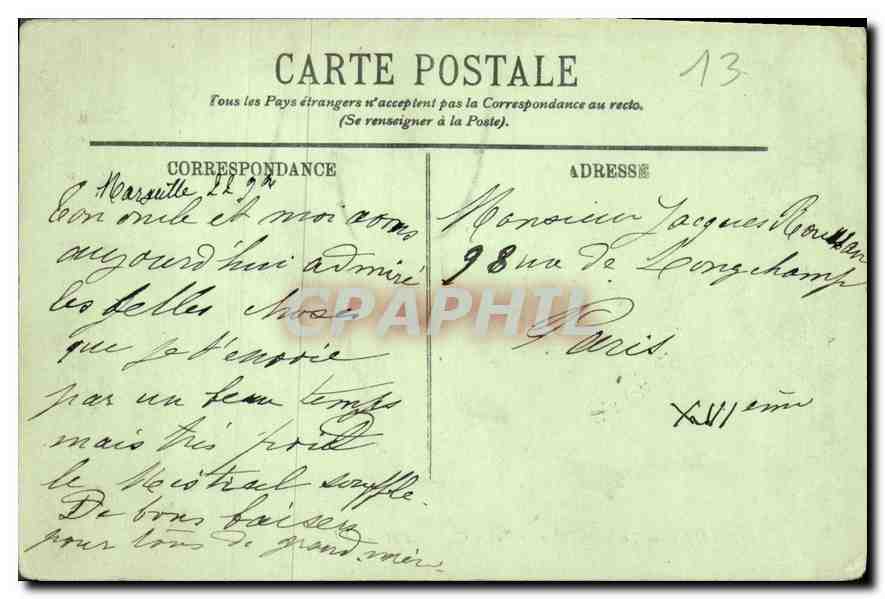 13
CARTE POSTALE
Tous les Pays étrangers n'acceptent pas la Correspondance au recto.
(Se renseigner à la Poste).
CORRESPONDANCE
Marseille 22 9bre
Ton oncle et moi avons
aujourd'hui admiré
les belles choses
que je t'envoie
par un beau temps
mais très froid
le Mistral souffle.
De bons baisers
pour tous de grand mère
ADRESSE
Monsieur Jacques
98 rue de Longchamp
Paris
XVIème
CPAPHIL